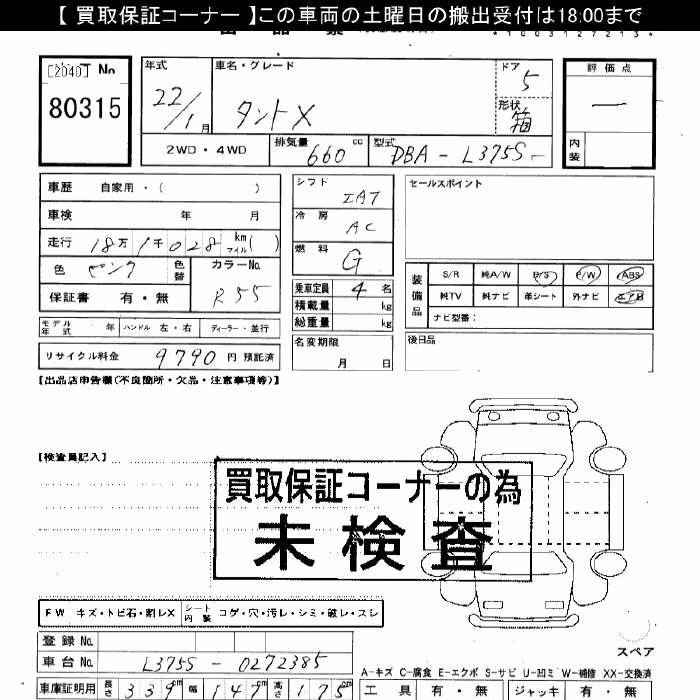 【 買取保証コーナー 】この車両の土曜日の搬出受付は18:00まで
*1003127213*
[2040] No
80315
年式
22/1月
車名・グレード
タントX
ドア
5
形状
箱
評価点
—
内装
2WD・4WD
排気量
660 cc
型式
DBA - L375S -
車歴 自家用・( )
車検 年 月
走行 18万1千028 km マイル ( )
色 ピンク 色替
カラーNo.
R55
保証書 有・無
モデル年式 年 ハンドル 左・右 ディーラー・並行
リサイクル料金 9790 円 預託済
シフト
IAT
冷房
AC
燃料
G
乗車定員 4 名
積載量 kg
総重量 kg
名変期限
月 日
セールスポイント
装備品
S/R 純A/W P/S P/W ABS
純TV 純ナビ 革シート 外ナビ エアB
ナビ型番:
後日品
【出品店申告欄(不良箇所・欠品・注意事項等)】
【検査員記入】
買取保証コーナーの為
未検査
FW キズ・トビ石・割レX シート内装 コゲ・穴・汚レ・シミ・破レ・スレ
登録 No.
車台 No. L375S - 0272385
車庫証明用 長さ 339 cm 幅 147 cm 高さ 175 cm
スペア
A-キズ C-腐食 E-エクボ S-サビ U-凹ミ W-補修 XX-交換済
工具 有・無 ジャッキ 有・無